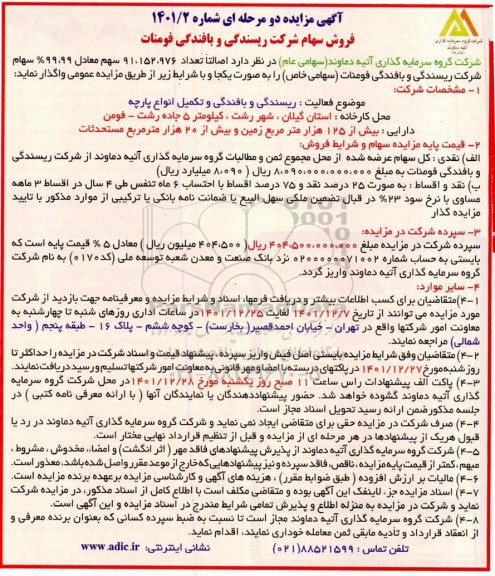 آگهی مزایده دو مرحله ای شماره ۱۴۰۱/۲
فروش سهام شرکت ریسندگی و بافندگی فومنات
شرکت گروه سرمایه گذاری آتیه دماوند
شرکت گروه سرمایه گذاری آتیه دماوند(سهامی عام) در نظر دارد اصالتاً تعداد ۹۱،۱۵۲،۹۷۶ سهم معادل ۹۹،۹۹% سهام
شرکت ریسندگی و بافندگی فومنات (سهامی خاص) را به صورت یکجا و با شرایط زیر از طریق مزایده عمومی واگذار نماید:
۱- مشخصات شرکت:
موضوع فعالیت : ریسندگی و بافندگی و تکمیل انواع پارچه
محل کارخانه : استان گیلان ، شهر رشت ، کیلومتر ۵ جاده رشت - فومن
دارایی : بیش از ۱۲۵ هزار متر مربع زمین و بیش از ۲۰ هزار مترمربع مستحدثات
۲- قیمت پایه مزایده سهام و شرایط فروش:
الف) نقدی : کل سهام عرضه شده از محل مجموع ثمن و مطالبات گروه سرمایه گذاری آتیه دماوند از شرکت ریسندگی
و بافندگی فومنات به مبلغ ۸،۰۹۰،۰۰۰،۰۰۰،۰۰۰ ریال ( ۸،۰۹۰ میلیارد ریال)
ب) نقد و اقساط : به صورت ۲۵ درصد نقد و ۷۵ درصد اقساط با احتساب ۶ ماه تنفس طی ۴ سال در اقساط ۳ ماهه
مساوی با نرخ سود ۲۳% در قبال تضمین ملکی سهل البیع یا ضمانت نامه بانکی یا ترکیبی از موارد مذکور با تایید
مزایده گذار
۳- سپرده شرکت در مزایده:
سپرده شرکت در مزایده مبلغ ۴۰۴،۵۰۰،۰۰۰،۰۰۰ ریال( ۴۰۴،۵۰۰ میلیون ریال) معادل ۵ % قیمت پایه است که
بایستی به حساب شماره ۰۲۰۰۰۰۰۰۷۱۰۰۲ نزد بانک صنعت و معدن شعبه توسعه ملی (کد۰۱۷۰) به نام شرکت
گروه سرمایه گذاری آتیه دماوند واریز گردد.
۴- سایر موارد:
۴-۱) متقاضیان برای کسب اطلاعات بیشتر و دریافت فرمها، اسناد و شرایط مزایده و معرفینامه جهت بازدید از شرکت
مورد مزایده می توانند از تاریخ ۱۴۰۱/۱۲/۷ لغایت ۱۴۰۱/۱۲/۲۵ در ساعات اداری روزهای شنبه تا چهارشنبه به
معاونت امور شرکتها واقع در تهران - خیابان احمدقصیر( بخارست) - کوچه ششم - پلاک ۱۶ - طبقه پنجم ( واحد
شمالی) مراجعه نمایند.
۴-۲) متقاضیان وفق شرایط مزایده بایستی اصل فیش واریز سپرده، پیشنهاد قیمت و اسناد شرکت در مزایده را حداکثر تا
روز شنبه مورخ ۱۴۰۱/۱۲/۲۷ در پاکتهای دربسته با امضاء و مهر قانونی به معاونت امور شرکتها تسلیم و رسید دریافت نمایند.
۴-۳) پاکت الف پیشنهادات راس ساعت ۱۱ صبح روز یکشنبه مورخ ۱۴۰۱/۱۲/۲۸ در محل شرکت گروه سرمایه
گذاری آتیه دماوند گشوده خواهد شد. حضور پیشنهاددهندگان یا نمایندگان آنها ( با ارائه معرفی نامه کتبی ) در
جلسه مذکور ضمن ارائه رسید تحویل اسناد مجاز است.
۴-۴) صرف شرکت در مزایده حقی برای متقاضی ایجاد نمی نماید و شرکت گروه سرمایه گذاری آتیه دماوند در رد یا
قبول هریک از پیشنهادها در هر مرحله ای از مزایده و قبل از تنظیم قرارداد نهایی مختار است.
۴-۵) شرکت گروه سرمایه گذاری آتیه دماوند از پذیرش پیشنهادهای فاقد مهر ( اثر انگشت) و امضاء، مخدوش ، مشروط ،
مبهم، کمتر از قیمت پایه مزایده ، ناقص، فاقد سپرده و نیز پیشنهادهایی که خارج از موعد مقرر واصل شده باشد، معذور است.
۴-۶) مالیات بر ارزش افزوده ( طبق ضوابط مقرر) ، هزینه های آگهی و کارشناسی مزایده برعهده برنده مزایده است.
۴-۷) اسناد مزایده جزء لاینفک این آگهی بوده و متقاضی مکلف است با اطلاع کامل از اسناد مذکور، در مزایده شرکت
نماید و شرکت در مزایده به منزله اطلاع و پذیرش تمامی شرایط مندرج در اسناد مزایده و این آگهی است.
۴-۸) شرکت گروه سرمایه گذاری آتیه دماوند مجاز است تا نسبت به ضبط سپرده کسانی که بعنوان برنده معرفی و
از انعقاد قرارداد و تأدیه مابقی ثمن معامله خودداری نمایند، اقدام نماید.
تلفن تماس : ۸۸۵۲۱۵۹۹(۰۲۱) نشانی اینترنتی: www.adic.ir